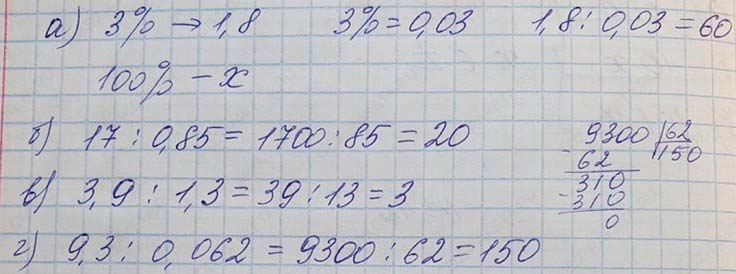 а) 3% → 1,8 3% = 0,03 1,8 : 0,03 = 60
100% - x
б) 17 : 0,85 = 1700 : 85 = 20
в) 3,9 : 1,3 = 39 : 13 = 3
г) 9,3 : 0,062 = 9300 : 62 = 150
9300 | 62
- 62 | 150
310
- 310
0